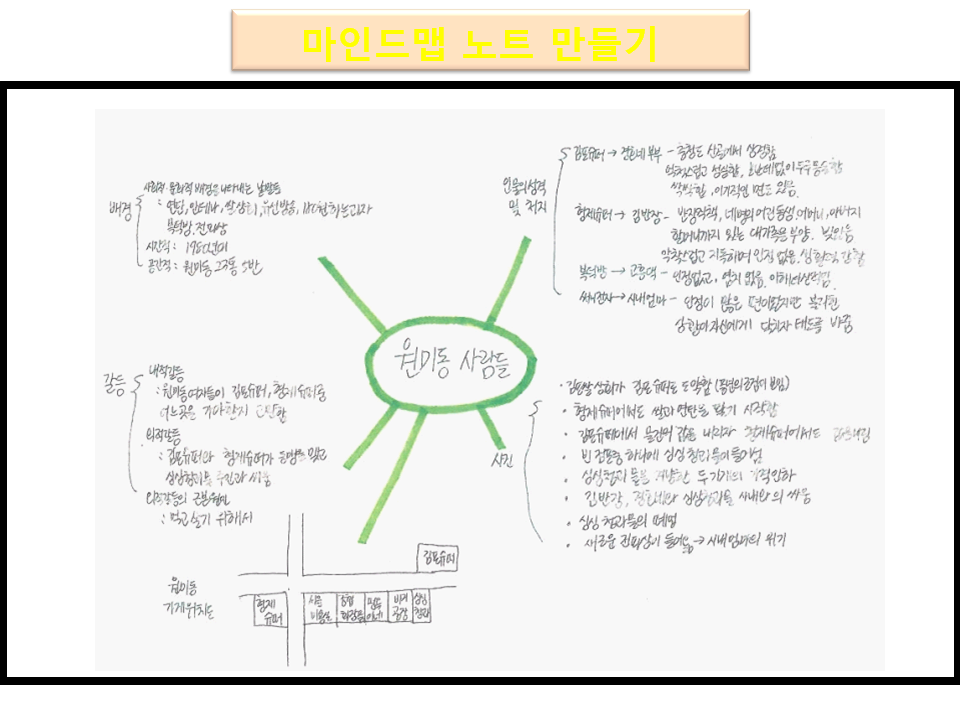 마인드맵 노트 만들기
배경
사회적·문화적 배경을 나타내는 낱말들
: 연탄, 안테나, 쌀상회, 유선방송, 100원하는 과자
복덕방, 전파상
시간적 : 1980년대
공간적 : 원미동 23통 5반
인물의 성격
및 처지
김포슈퍼 → 경호네 부부 - 충청도 산골에서 상경함
억척스럽고 성실함,
싹싹함, 이기적인 면도 있음
형제슈퍼 → 김반장 - 반장직책, 네명의 어린동생, 어머니, 아버지
할머니까지 있는 대가족을 부양. 빚있음
악착스럽고 지독하며 인정 없음.
복덕방 → 고흥댁 - 인정없고, 염치 없음.
써니전자 → 시내엄마 - 인정이 많은 편이었지만
상황이 자신에게 닥치자 태도를 바꿈
원미동 사람들
갈등
내적갈등
: 원미동여자들이 김포슈퍼, 형제슈퍼중
어느곳을 가야할지 고민함
외적갈등
: 김포슈퍼와 형제슈퍼가
싱싱청과물
외적갈등의 근본원인
: 먹고 살기 위해서
사건
· 김포쌀상회가 김포슈퍼로 도약함
· 형제슈퍼에서도 쌀과 연탄을 팔기 시작함
· 김포슈퍼에서 물건의 값을 내리자 형제슈퍼에서도
· 빈 점포중 하나에 싱싱청과물이 들어섬
· 싱싱청과물을 겨냥한 두가게의 가격인하
· 김반장, 싱싱청과물 사내와의 싸움
· 싱싱청과물의 폐업
· 새로운 전파상이 들어옴 → 시내엄마의 위기
원미동
가게위치도
김포슈퍼
형제
슈퍼
서울
미용실
싱싱
청과